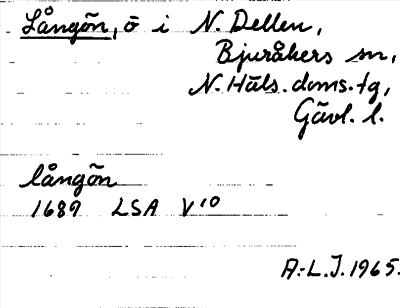 Långön, ö i N. Dellen,
Bjuråkers sn,
N. Häls. doms.tg,
Gävl. l.
långön
1689 LSA V¹⁰
A.-L.J. 1965.